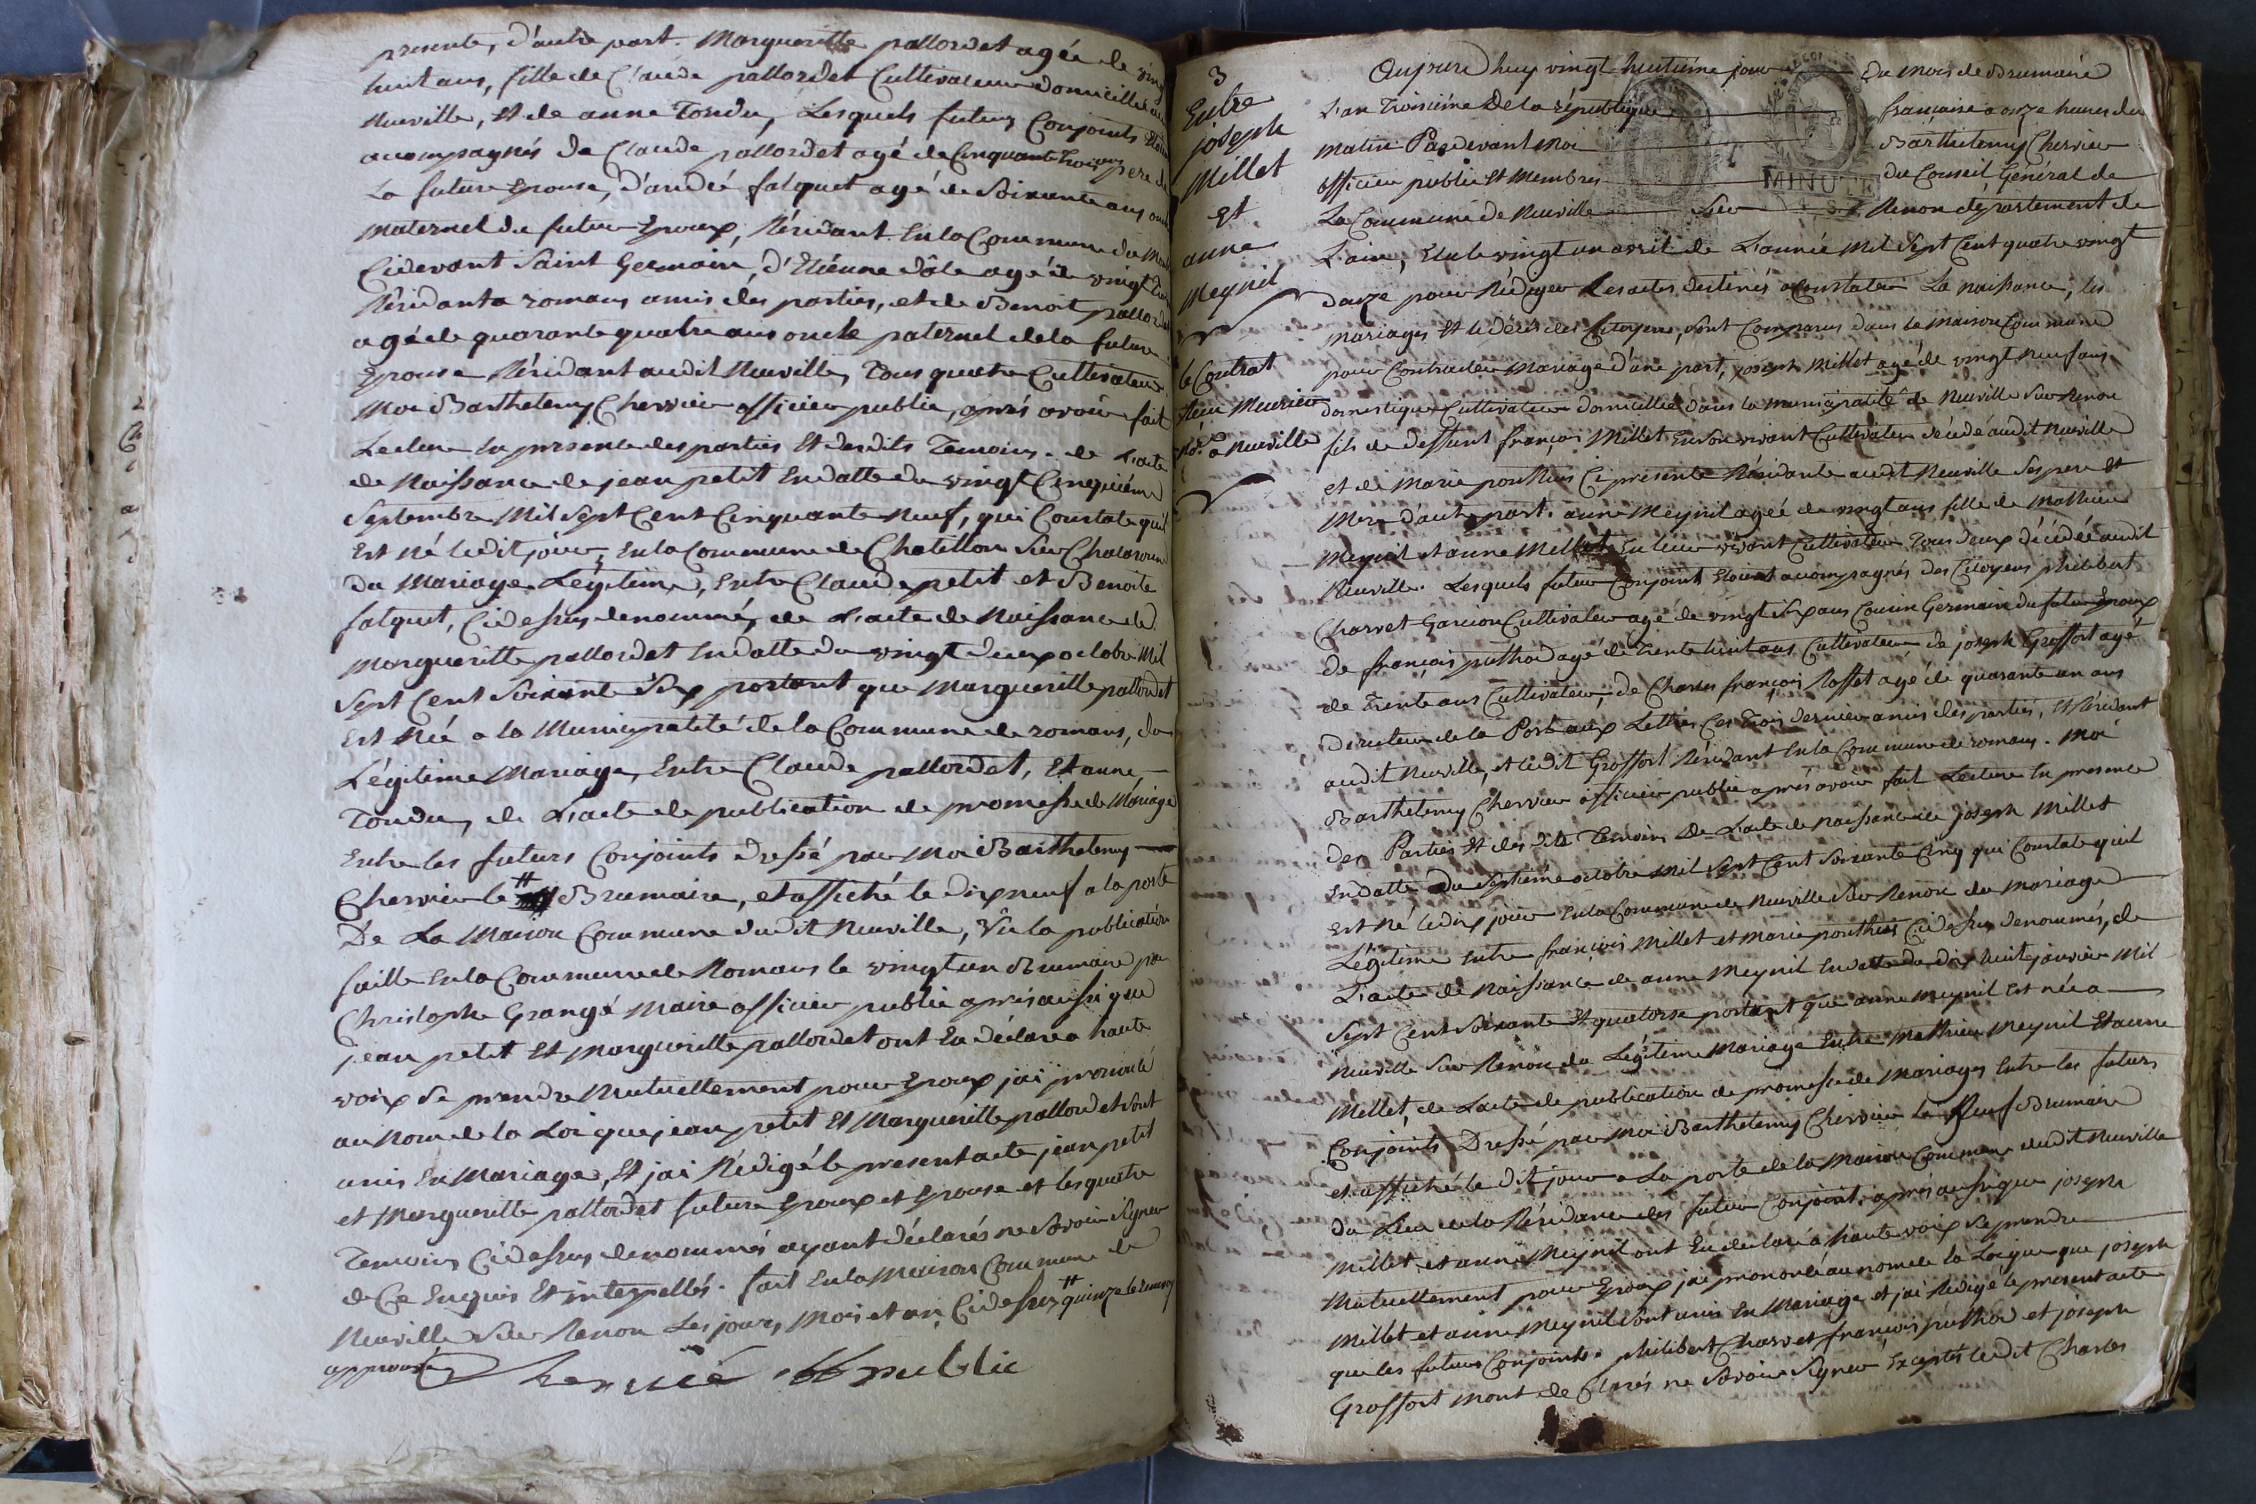 presente, d'autre part. Margueritte pallordet agée de vingt
huit ans, fille de Claude pallordet Cultivateur domicilié au
Neuville, Et de anne Tondu, Lesquels futurs Conjoints Etoient
acompagnés de Claude pallordet agé de Cinquante trois ans pere de
La future Epouse, d'andré falquet agé de Soixante ans oncle
Maternel du futur Epoux, Résidant En la Commune du
Cidevant Saint Germain, d'Etienne dôle agé de vingt
Résidant a romans amis des parties, et de Benoit pallordet
agé de quarante quatre ans oncle paternel de la future
Epouse Résidant audit Neuville, Tous quatre Cultivateurs
Moi Barthelemy Chervier officier public, aprés avoir fait
Lecture En presence des parties Et desdits Temoins. de L'acte
de Naissance de jean petit En datte du vingt Cinquième
Septembre Mil Sept Cent Cinquante Neuf, qui Constate qu'il
Est Né ledit jour, En la Commune de Chatillon Sur Chalaronne
du Mariage Légitime, Entre Claude petit et Benoite
falquet, Cidessus denommés, de L'acte de Naissance de
Margueritte pallordet En datte du vingt deux octobre Mil
Sept Cent Soixante Six portant que Margueritte pallordet
Est Née a la Municipalité de la Commune de romans, du
Légitime Mariage, Entre Claude pallordet, Et anne
Tondu, de L'acte de publication de promesse de Mariage
Entre les futurs Conjoints dressé par Moi Barthelemy
Chervier le # Brumaire, et affiché le dix neuf a la porte
De La Maison Commune dudit Neuville, Vû la publication
faitte En la Commune de Romans le vingt un Brumaire par
Christophe Grangé Maire officier public aprés aussi que
jean petit Et Margueritte pallordet ont Eu déclaré a haute
voix Se prendre Mutuellement pour Epoux jai prononcé
au Nom de la Loi que jean petit Et Margueritte pallordet Sont
unis En Mariage, Et jai Rédigé le present acte jean petit
et Margueritte pallordet future Epoux et Epouse et les quatre
Temoins Cidessus denommés ayant déclarés ne Savoir Signer
de Ce Enquis Et interpellés. fait En la Maison Commune de
Neuville Sur Renon Les jour, Mois et an Cidessus # quinze le renvoy
approuvé Chervié off public
3
Entre
joseph
Millet
et
anne
Meynil
le Contrat
Reçu Meurier
No.re a Neuville
Aujourd'huy vingt huitième jour du Mois de Brumaire
L'an Troisième De la république française a onze heures du
Matin Pardevant Moi Barthelemy Chervier
officier public Et Membres du Conseil Général de
La Commune de Neuville Sur Renon département de
L'ain, Elu le vingt un avril de L'année Mil Sept Cent quatre vingt
douze pour Rédiger Les actes destinés a Constater La naissance, les
Mariages Et le décès des Citoyens, Sont Comparus dans la Maison Commune
pour Contracter Mariage d'une part, joseph Millet agé de vingt Neuf ans
domestique Cultivateur domicillié dans la municipalité de Neuville Sur Renon
fils de deffunt françois Millet En Son vivant Cultivateur décédé audit Neuville
et de Marie pouthus Ci présente Résidante audit Neuville Ses pere Et
Mere d'autre part. anne Meynil agée de vingt ans fille de Mathieu
Meynil et anne Mellet En leur vivant Cultivateur Tous deux décédés audit
Neuville. Lesquels futur Conjoint Etoient acompagnés des Citoyens philibert
Charvet Garcion Cultivateur agé de vingt Six ans Cousin Germain du futur Epoux
de françois puthod agé de trente huit ans Cultivateur, de joseph Groffort agé
de Trente ans Cultivateur, de Charles françois Roffet agé de quarante un ans
Directeur de la Poste aux Lettres Ces Trois derniers amis des parties, Et Résidant
audit Neuville, et ledit Groffort Résidant En la Commune de romans. Moi
Barthelemy Chervier officier public aprés avoir fait Lecture En presence
des Parties Et des dits Temoins De L'acte de Naissance de joseph Millet
En datte du Septième octobre Mil Sept Cent Soixante Cinq qui Constate qu'il
est Né ledix jour En la Commune de Neuville Sur Renon du Mariage
Légitime Entre françois Millet et Marie pouthus Cidessus denommés, de
L'acte de Naissance de anne Meynil En datte du dix huit janvier Mil
Sept Cent Soixante Et quatorse portant que anne Meynil Est née a
Neuville Sur Renon du Légitime Mariage Entre Mathieu Meynil Et anne
Mellet, de L'acte de publication de promesse de Mariages Entre les futurs
Conjoints Dressé par Moi Barthelemy Chervier le Neuf Brumaire
et affiché le dit jour a La porte de la Maison Commune dudit Neuville
du Lieu de la Résidance des futur Conjoint, aprés aussi que joseph
Millet, et anne Meynil ont Eu declaré a haute voix Se prendre
Mutuellement pour Epoux jai prononcé au nom de la Loi que que joseph
Millet et anne Meynil Sont unis En Mariage et jai Rédigé le present acte
que les futurs Conjoints. philibert Charvet françois puthod et joseph
Groffort Mont declarés ne Savoir Signer Exceptés ledit Charles
MINUTE